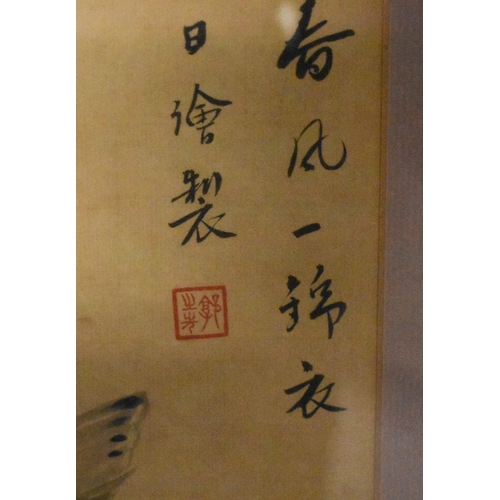 春风一錦衣
日繪製